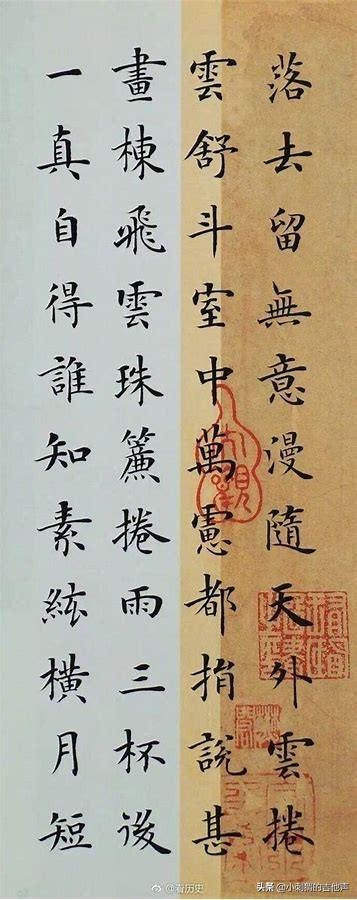 落去留無意漫隨天外雲捲
雲舒斗室中萬慮都捐說甚
畫棟飛雲珠簾捲雨三杯後
一真自得誰知素絃橫月短
@看历史
头条 @小刺猬的吉他声